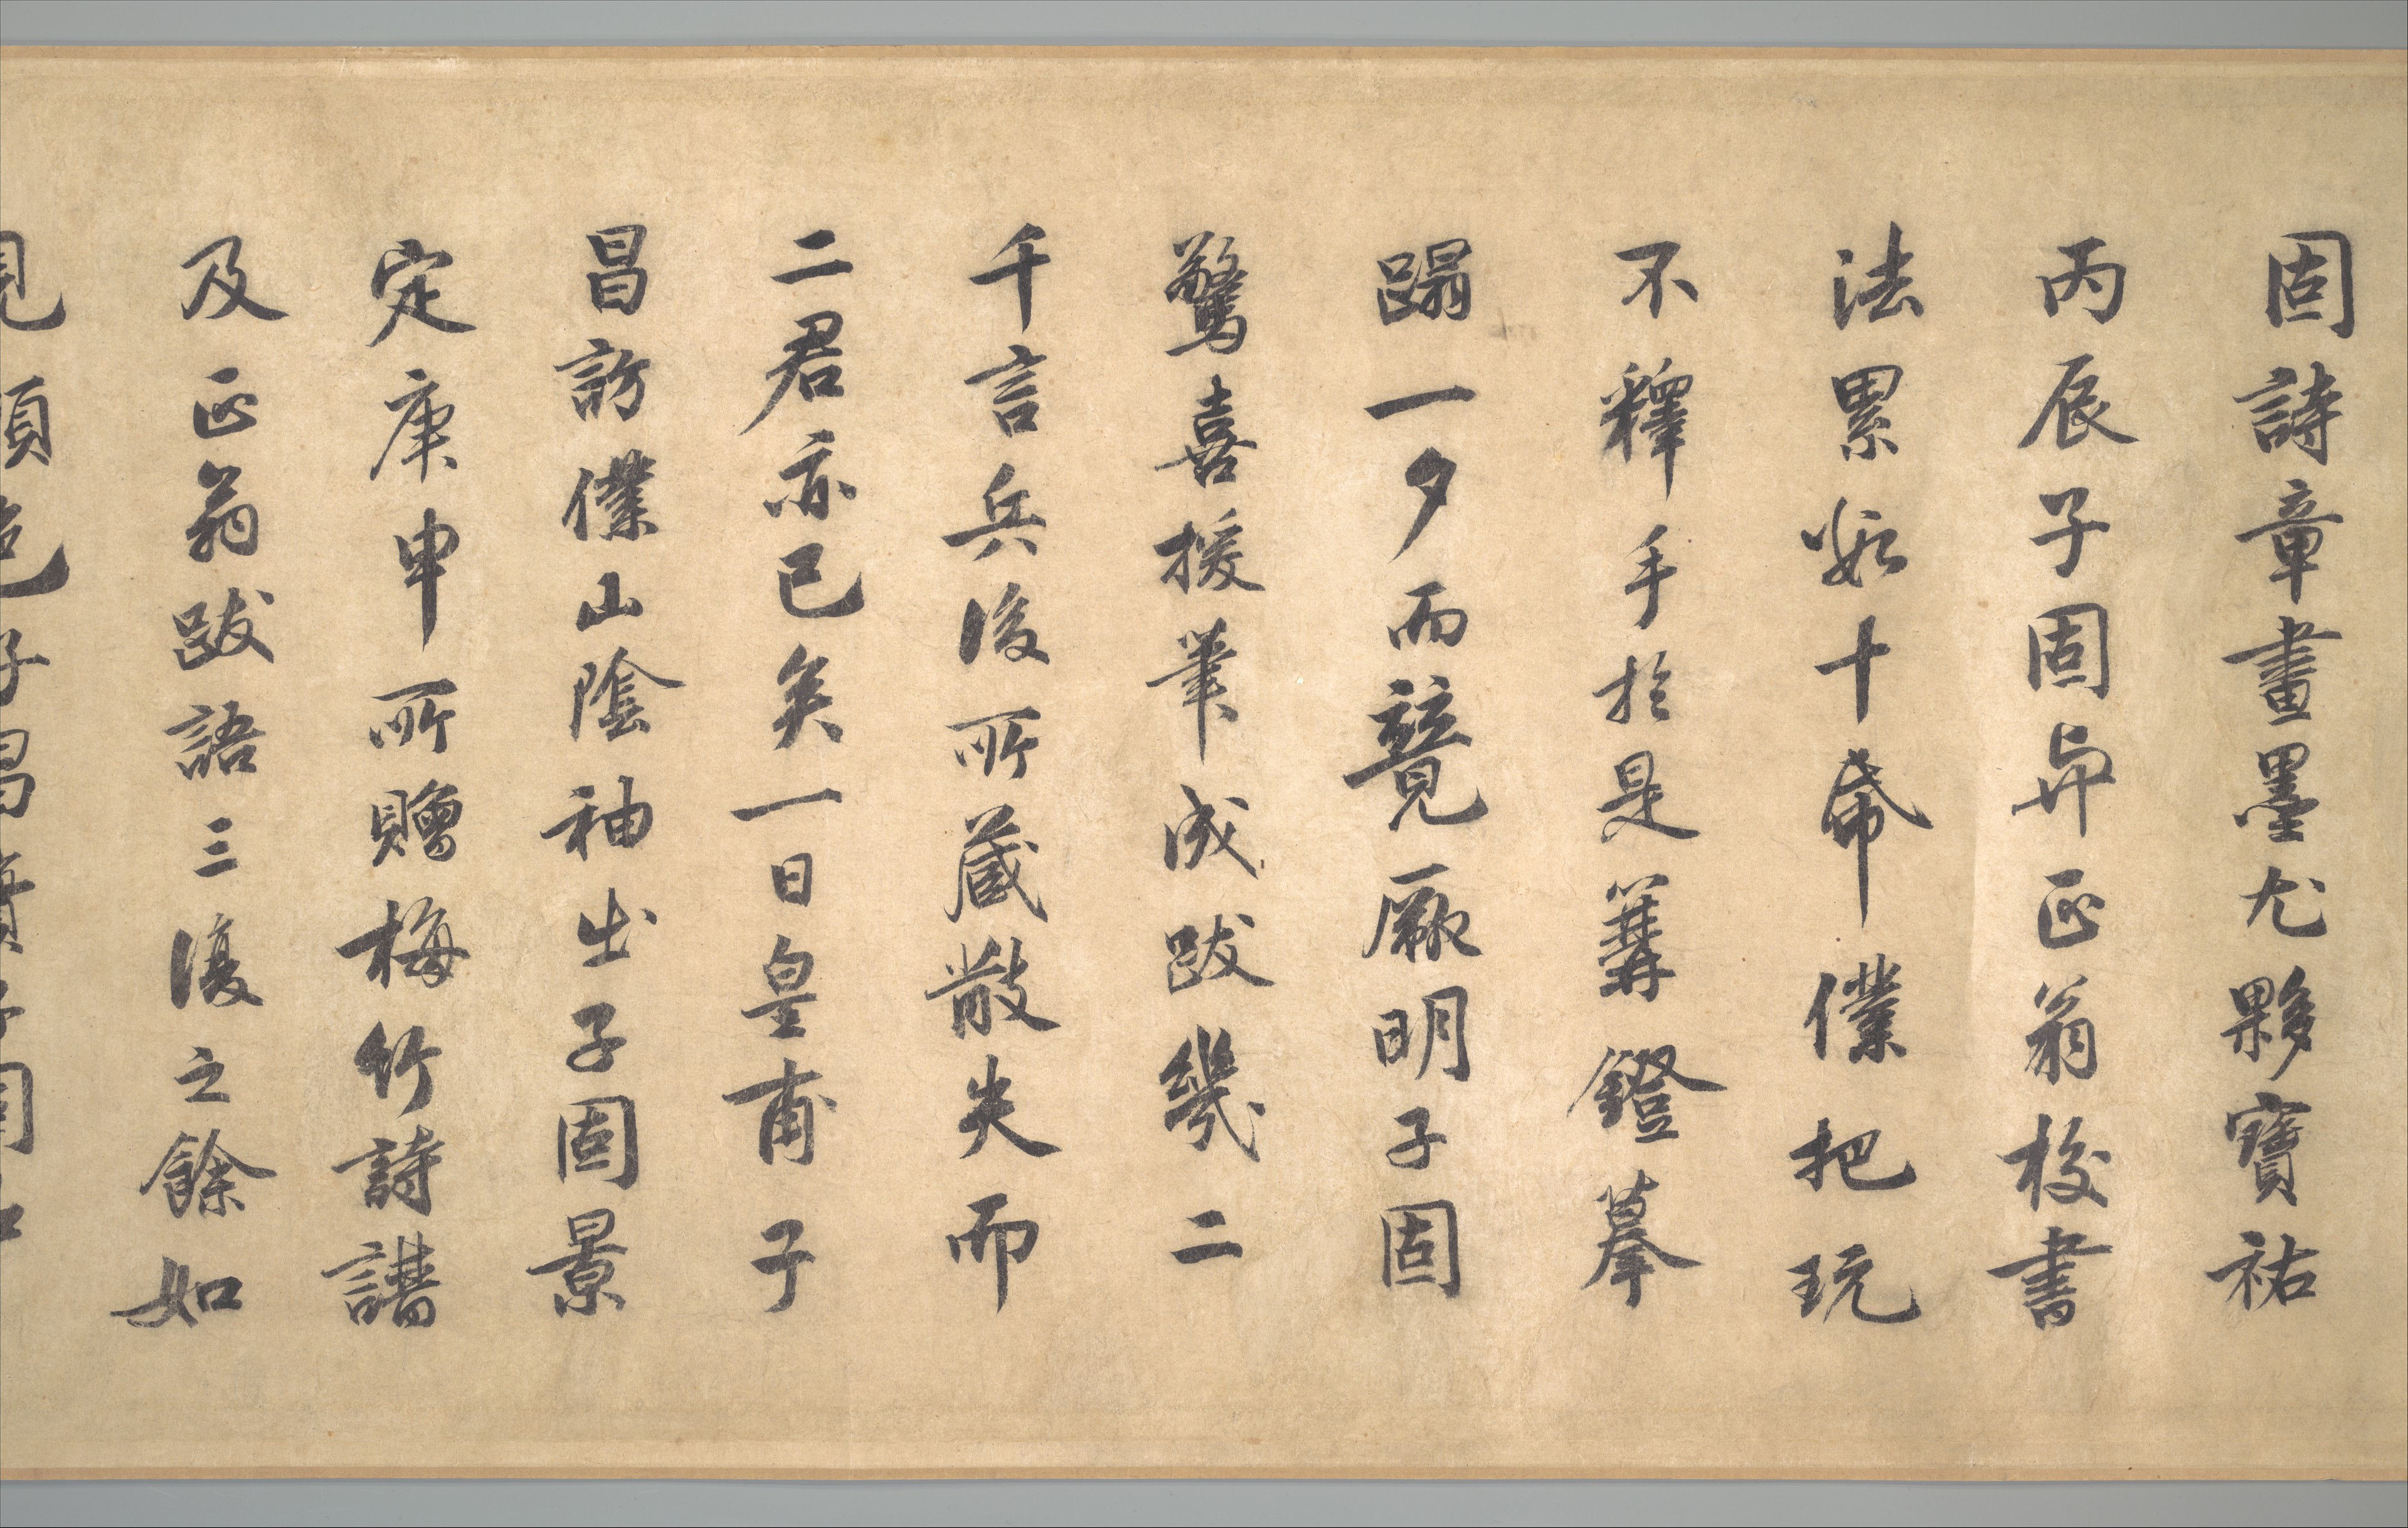 固詩章畫墨尤夥寶祐
丙辰子固與正翁校書
法累數十希僕把玩
不釋手於是篝鐙摹
蹋一夕而竟厥明子固
驚喜援筆成跋幾二
千言兵後所蔵散失而
二君亦已矣一日皇甫子
昌訪僕山陰袖出子固景
定庚申所贈梅竹詩譜
及正翁跋語三復之餘如